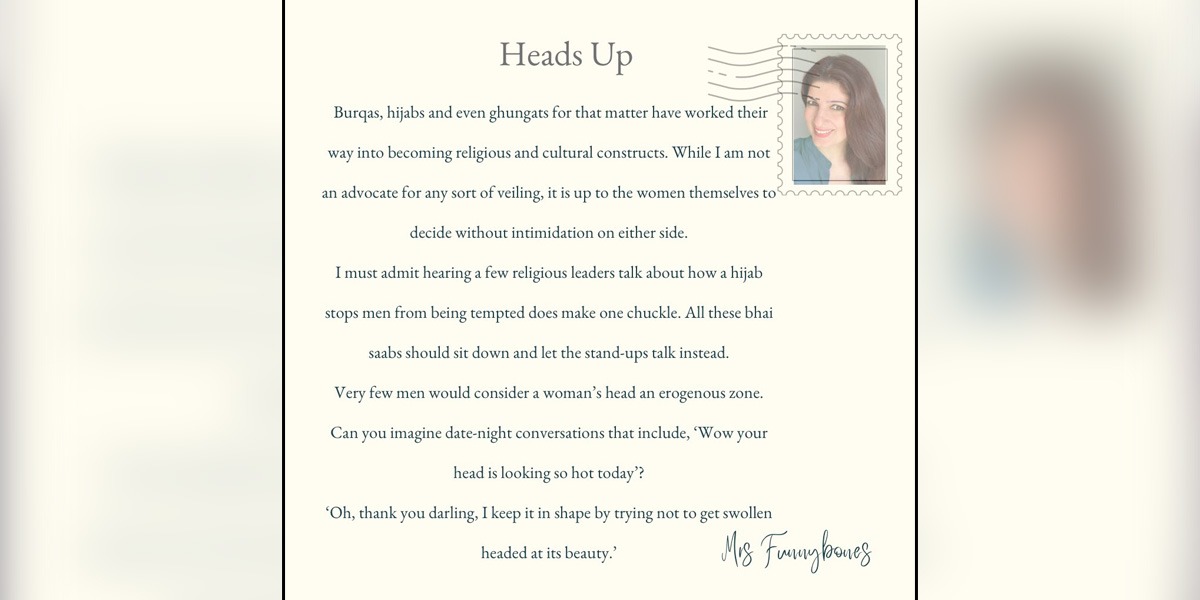 Heads Up
Burqas, hijabs and even ghungats for that matter have worked their
way into becoming religious and cultural constructs. While I am not
an advocate for any sort of veiling, it is up to the women themselves to
decide without intimidation on either side.
I must admit hearing a few religious leaders talk about how a hijab
stops men from being tempted does make one chuckle. All these bhai
saabs should sit down and let the stand-ups talk instead.
Very few men would consider a woman’s head an erogenous zone.
Can you imagine date-night conversations that include, ‘Wow your
head is looking so hot today’?
‘Oh, thank you darling, I keep it in shape by trying not to get swollen
headed at its beauty.’
Mrs Funnybones